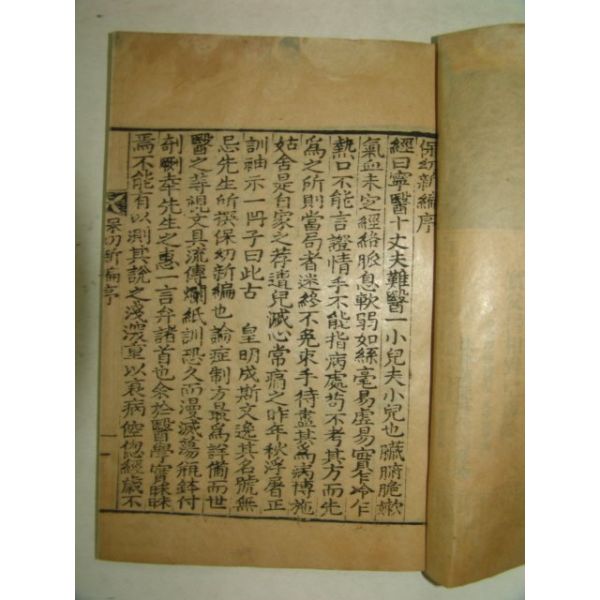 保幼新編序
經曰寧醫十丈夫難醫一小兒夫小兒也臟腑脆嫩
氣血未定經絡脈息軟弱如絲毫易虛易實乍冷乍
熱口不能言證情手不能指病處苟不考其方而先
爲之所則當局者迷終不免束手待盡其爲病博施
姑舍是自家之荐遺兒減心常病之昨年秋浮屠正
訓袖示一冊子曰此古 皇明成斯文逸其名號無
忌先生所撰保幼新編也論症制方最爲詳備而世
醫之等視文具流傳爛紙訓恐久而漫滅蕩甁鉢付
剞劂幸先生之惠一言弁諸首也余於醫學實昧昧
焉不能有以測其說之淺深重以衰病倥偬經歲不
保幼新編序
一